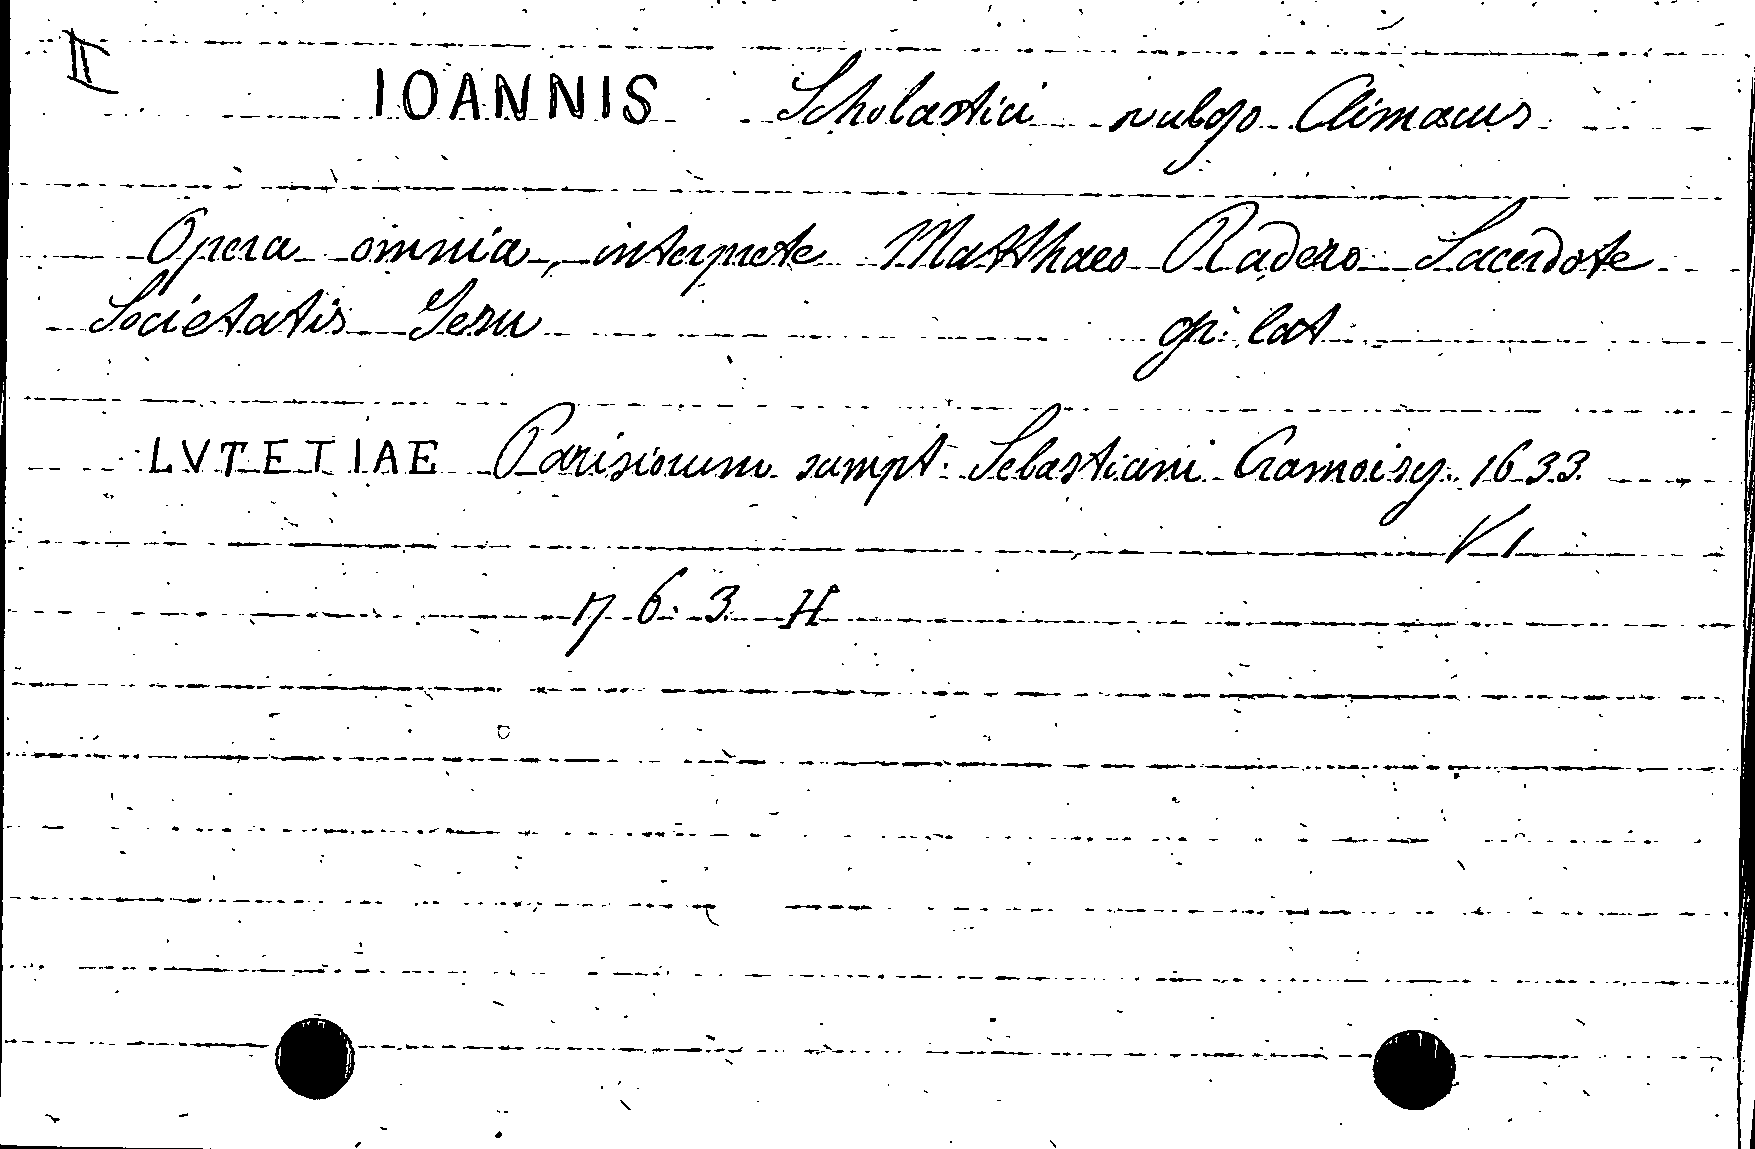 II
IOANNIS Scholastici vulgo Climacus
Opera omnia, interprete Matthaeo Radero Sacerdote
Societatis Iesu gr: lat
LVTETIAE Parisiorum sumpt: Sebastiani Cramoisy. 1633.
V 1
17 6: 3. H